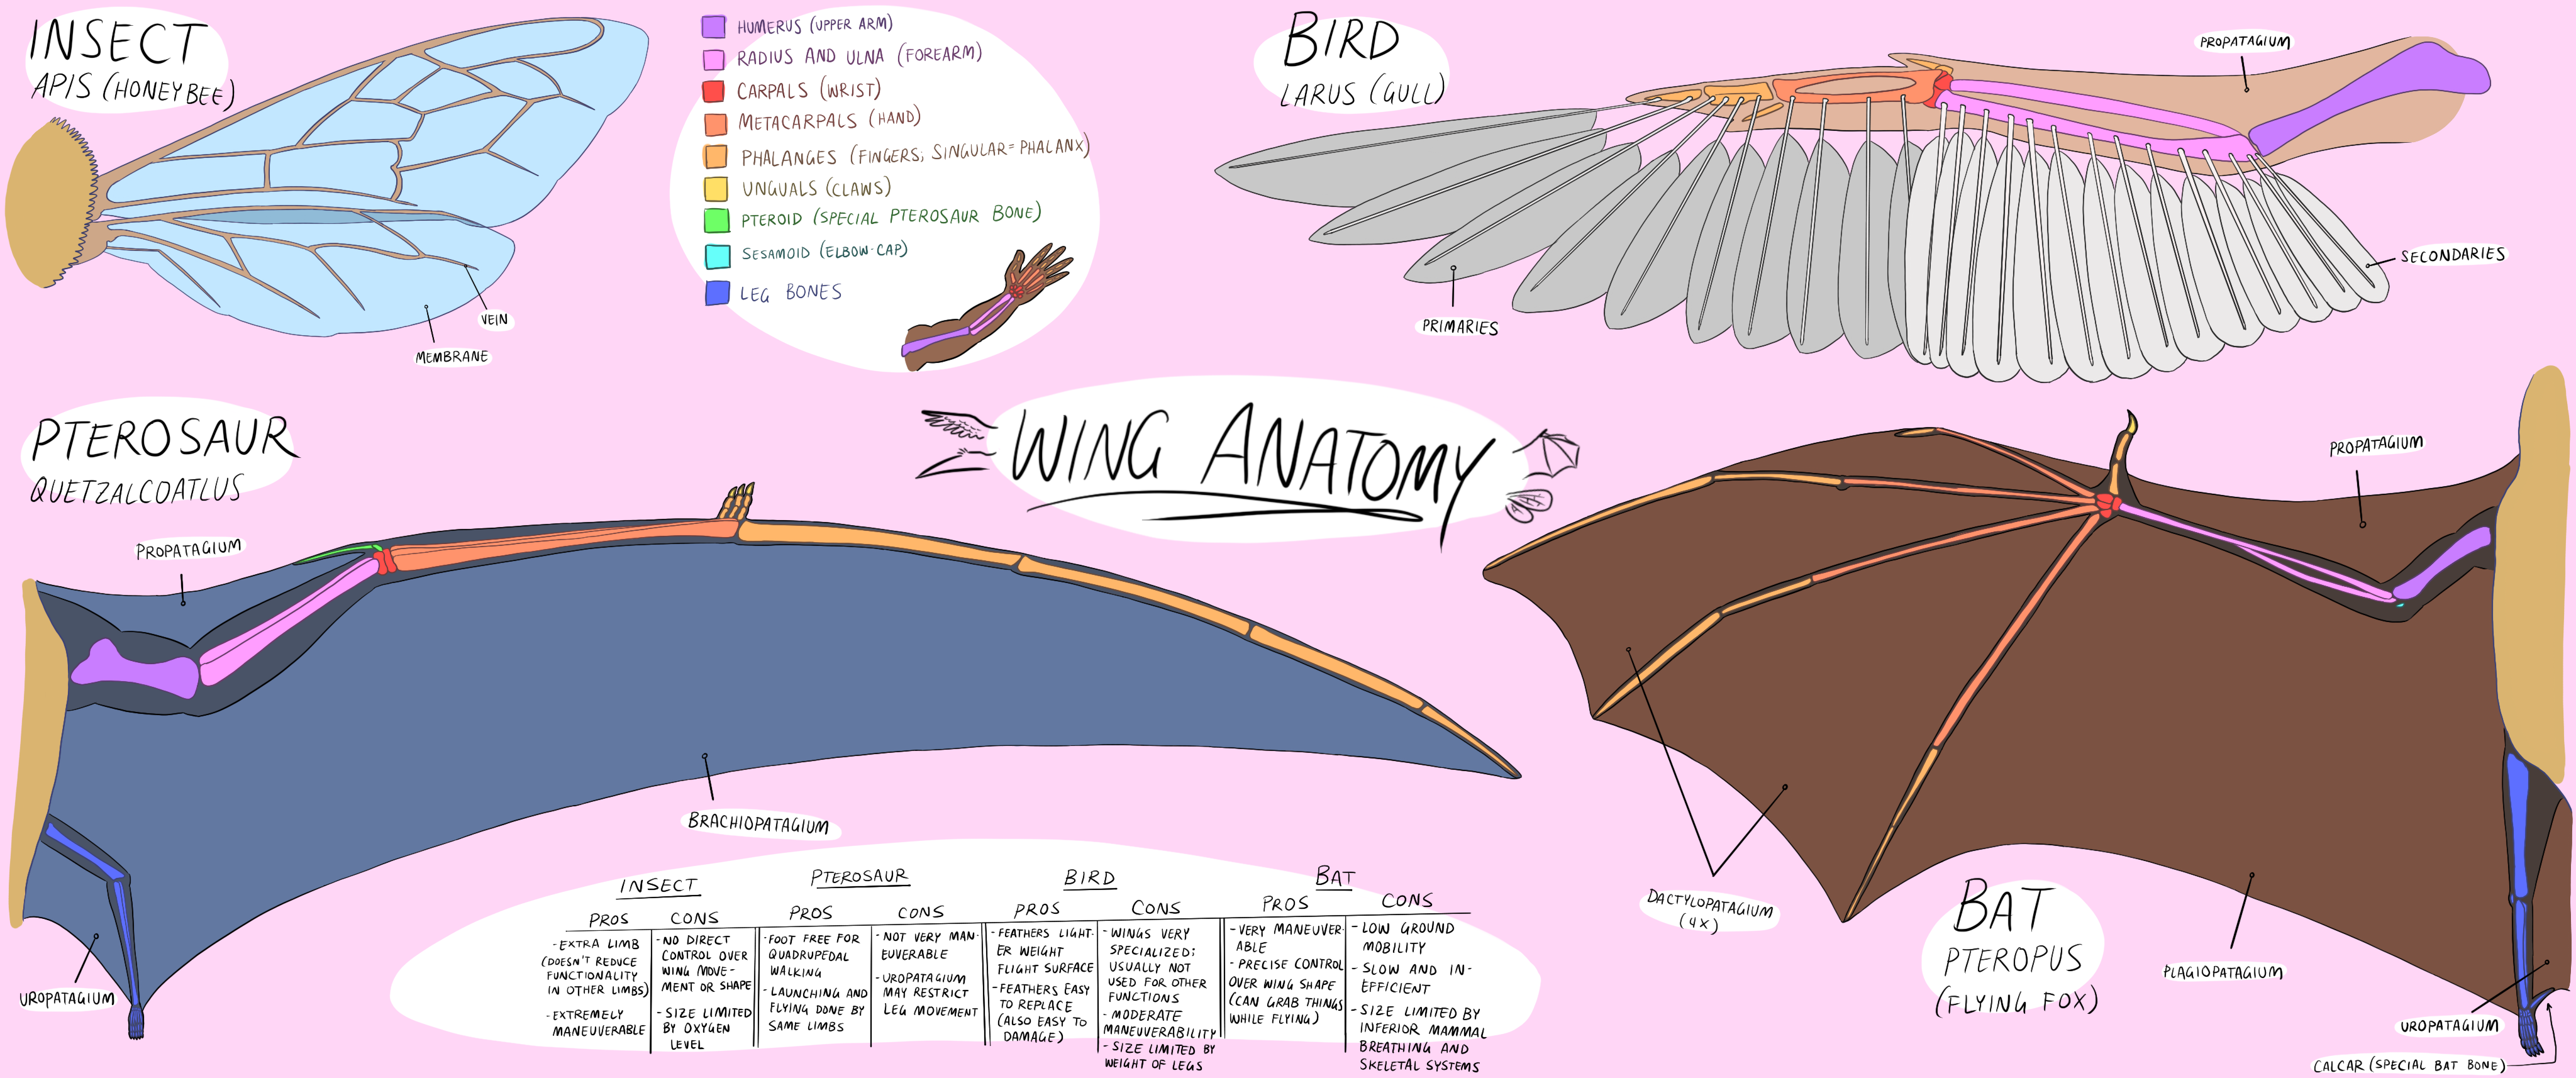 INSECT
APIS (HONEY BEE)
VEIN
MEMBRANE
HUMERUS (UPPER ARM)
RADIUS AND ULNA (FOREARM)
CARPALS (WRIST)
METACARPALS (HAND)
PHALANGES (FINGERS; SINGULAR = PHALANX)
UNGUALS (CLAWS)
PTEROID (SPECIAL PTEROSAUR BONE)
SESAMOID (ELBOW-CAP)
LEG BONES
BIRD
LARUS (GULL)
PROPATAGIUM
SECONDARIES
PRIMARIES
WING ANATOMY
PTEROSAUR
QUETZALCOATLUS
PROPATAGIUM
BRACHIOPATAGIUM
UROPATAGIUM
PROPATAGIUM
DACTYLOPATAGIUM
(4X)
BAT
PTEROPUS
(FLYING FOX)
PLAGIOPATAGIUM
UROPATAGIUM
CALCAR (SPECIAL BAT BONE)
INSECT
PROS
- EXTRA LIMB
(DOESN'T REDUCE
FUNCTIONALITY
IN OTHER LIMBS)
- EXTREMELY
MANEUVERABLE
CONS
- NO DIRECT
CONTROL OVER
WING MOVE-
MENT OR SHAPE
- SIZE LIMITED
BY OXYGEN
LEVEL
PTEROSAUR
PROS
- FOOT FREE FOR
QUADRUPEDAL
WALKING
- LAUNCHING AND
FLYING DONE BY
SAME LIMBS
CONS
- NOT VERY MAN-
EUVERABLE
- UROPATAGIUM
MAY RESTRICT
LEG MOVEMENT
BIRD
PROS
- FEATHERS LIGHT-
ER WEIGHT
FLIGHT SURFACE
- FEATHERS EASY
TO REPLACE
(ALSO EASY TO
DAMAGE)
CONS
- WINGS VERY
SPECIALIZED;
USUALLY NOT
USED FOR OTHER
FUNCTIONS
- MODERATE
MANEUVERABILITY
- SIZE LIMITED BY
WEIGHT OF LEGS
BAT
PROS
- VERY MANEUVER-
ABLE
- PRECISE CONTROL
OVER WING SHAPE
(CAN GRAB THINGS
WHILE FLYING)
CONS
- LOW GROUND
MOBILITY
- SLOW AND IN-
EFFICIENT
- SIZE LIMITED BY
INFERIOR MAMMAL
BREATHING AND
SKELETAL SYSTEMS